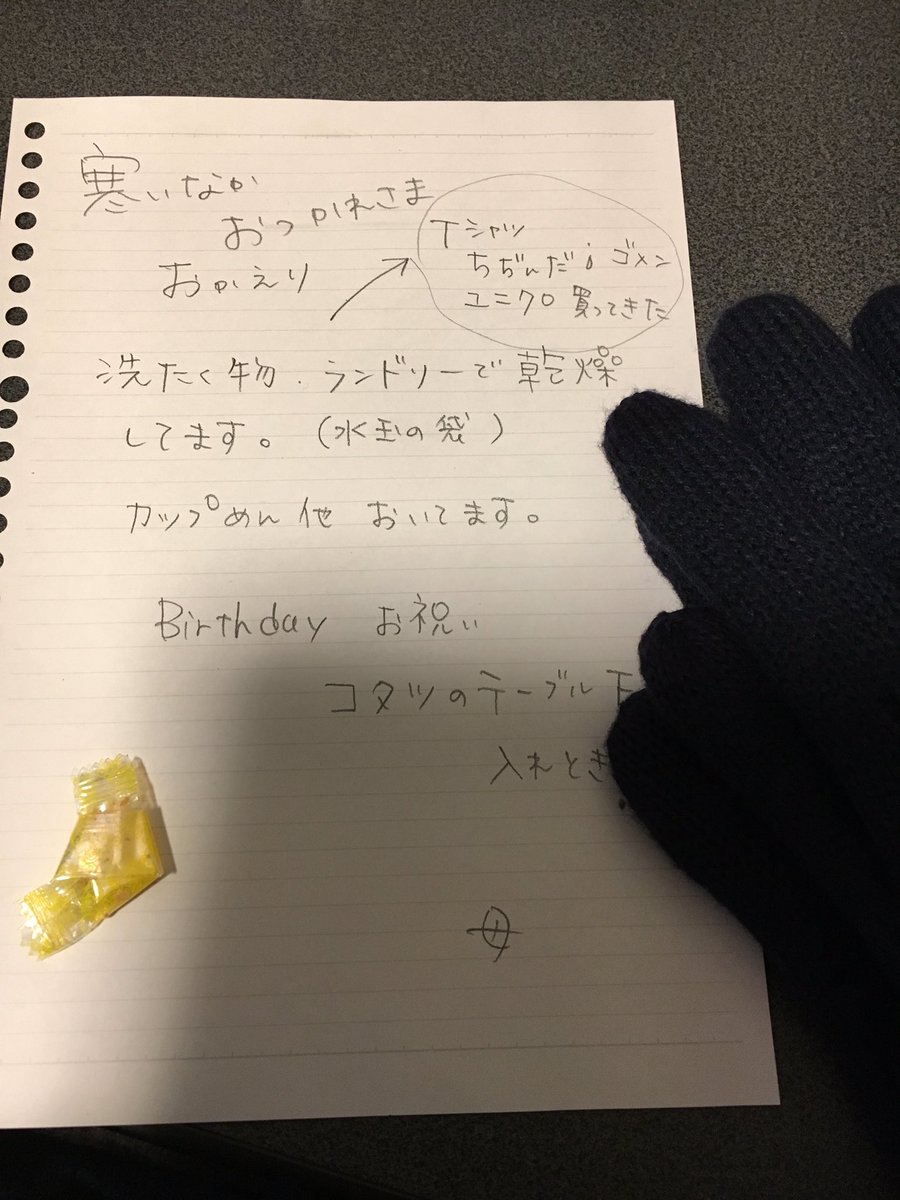 寒いなか
おつかれさま
おかえり
Tシャツ
ちぢんだ； ゴメン
ユニクロ 買ってきた
洗たく物．ランドリーで乾燥
してます。（水玉の袋）
カップめん他 おいてます。
Birthday お祝い
コタツのテーブル下
入れとき
母